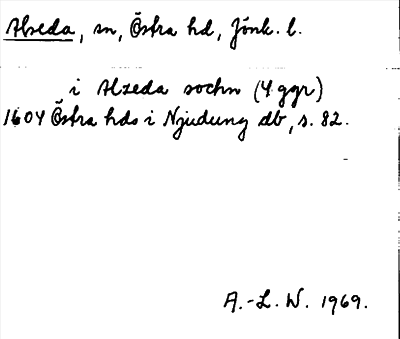 Alseda, sn, Östra hd, Jönk. l.
i Alzeda sochn (4 ggr)
1604 Östra hds i Njudung db, s. 82.
A.-L. W. 1969.